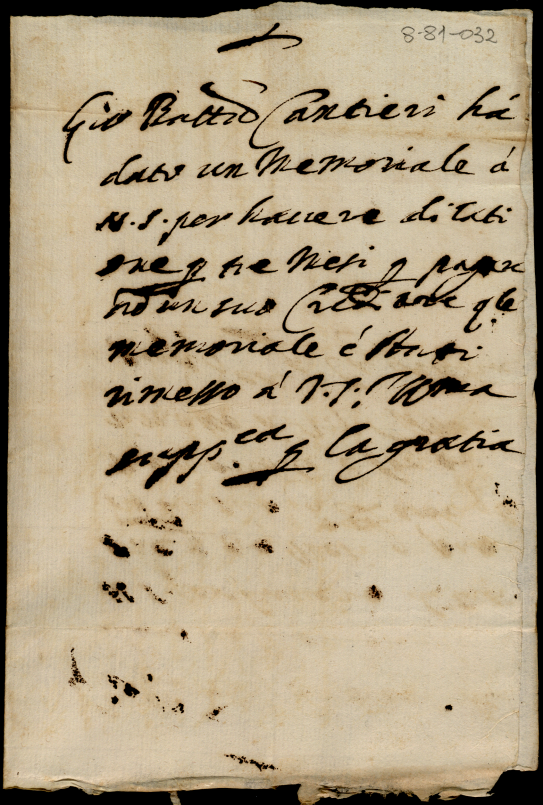 8-81-032
Gio Battᵃ Cantieri há
dato un Memoriale á
N.S. per havere dilati
one ꝑ tre Mesi ꝑ pagar
un suo Creditore
memoriale é stati
rimesso á V.S. Illma
supp.ca ꝑ la gratia